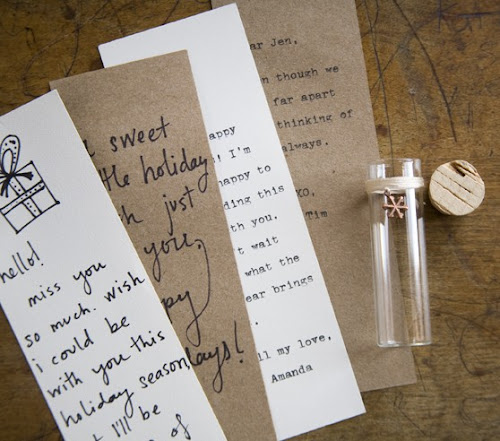 hello!
miss you
so much. wish
i could be
with you this
holiday season,
I'll be
of
sweet
ttle holiday
just
you,
ppy
days!
appy
! I'm
appy to
ding this
th you.
t wait
what the
ear brings
.
ll my love,
Amanda
ar Jen,
n though we
far apart
thinking of
always.
XO,
Tim